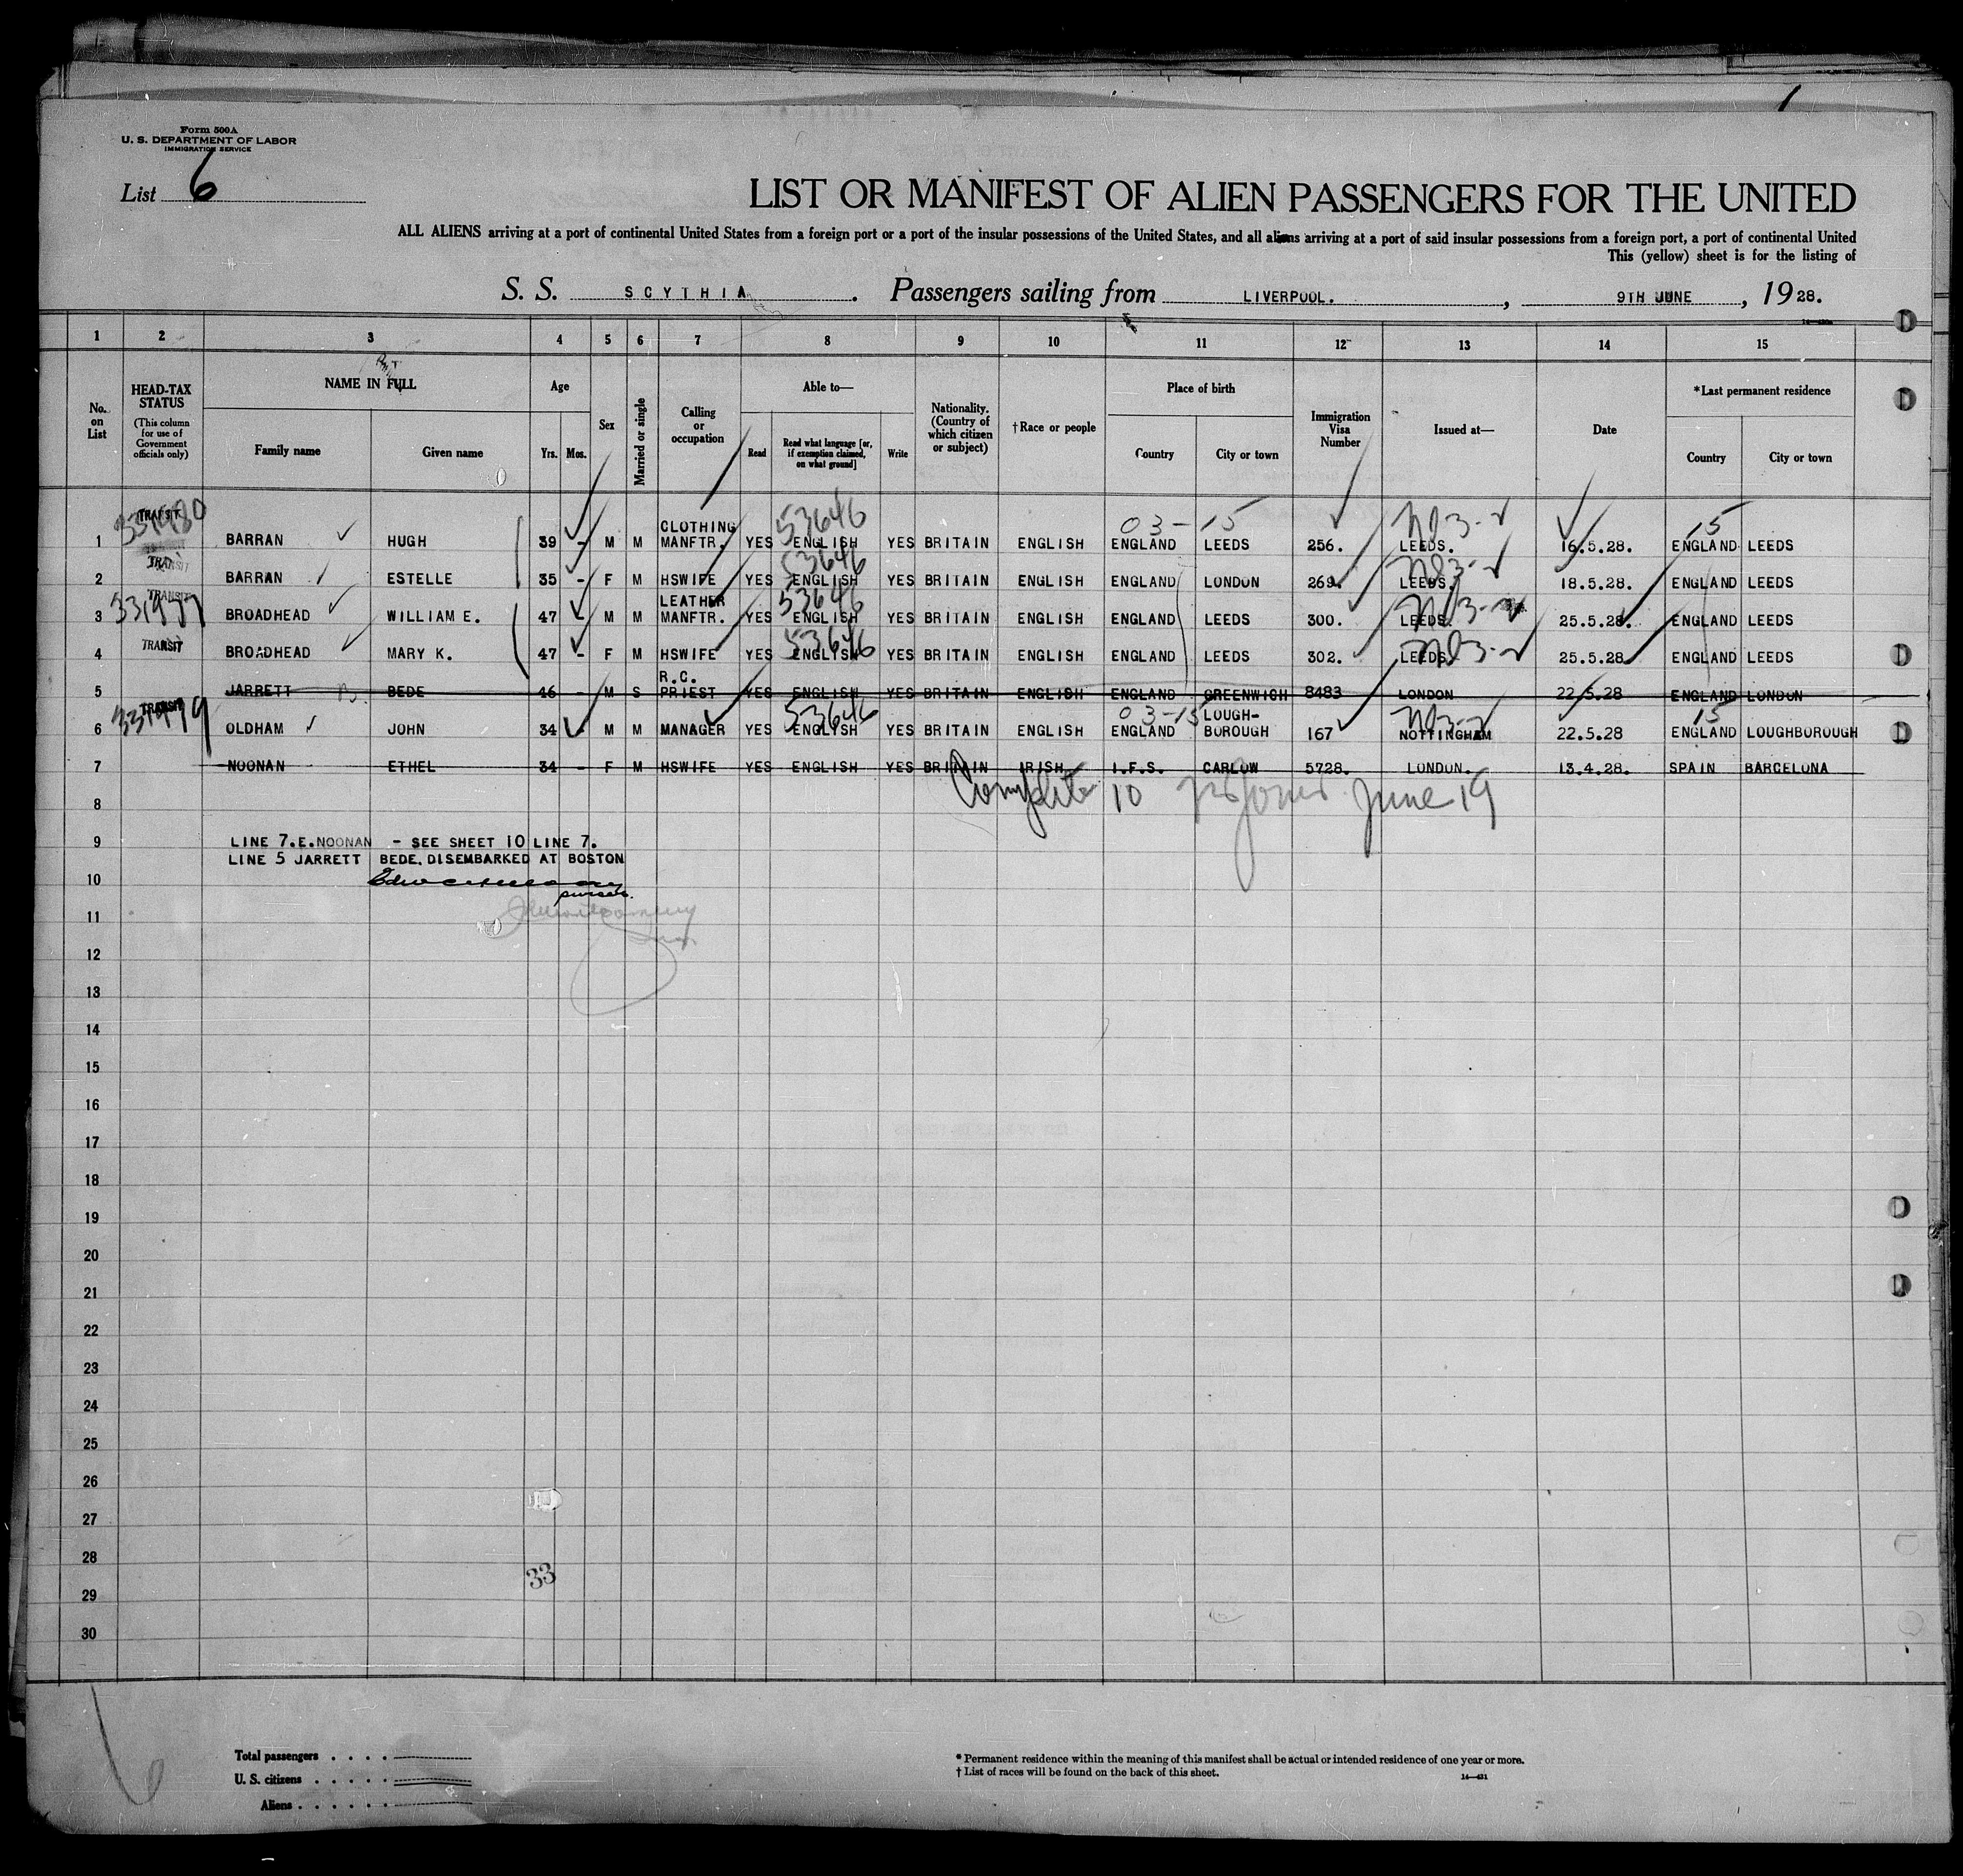 1
Form 500A
U. S. DEPARTMENT OF LABOR
IMMIGRATION SERVICE
List 6
LIST OR MANIFEST OF ALIEN PASSENGERS FOR THE UNITED
ALL ALIENS arriving at a port of continental United States from a foreign port or a port of the insular possessions of the United States, and all aliens arriving at a port of said insular possessions from a foreign port, a port of continental United
This (yellow) sheet is for the listing of
S. S. SCYTHIA. Passengers sailing from LIVERPOOL. , 9TH JUNE , 19 28.
1 2 3 4 5 6 7 8 9 10 11 12 13 14 15
No. on List
HEAD-TAX STATUS (This column for use of Government officials only)
NAME IN FULL
Family name Given name
Age
Yrs. Mos.
Sex
Married or single
Calling or occupation
Able to—
Read Read what language [or, if exemption claimed, on what ground] Write
Nationality. (Country of which citizen or subject)
†Race or people
Place of birth
Country City or town
Immigration Visa Number
Issued at—
Date
*Last permanent residence
Country City or town
TRANSIT 331980 53646 03-15 15
1 BARRAN HUGH 39 - M M CLOTHING MANFTR. YES ENGLISH YES BRITAIN ENGLISH ENGLAND LEEDS 256. LEEDS. 16.5.28. ENGLAND LEEDS
TRANSIT 53646
2 BARRAN ESTELLE 35 - F M HSWIFE YES ENGLISH YES BRITAIN ENGLISH ENGLAND LONDON 269. LEEDS. 18.5.28. ENGLAND LEEDS
TRANSIT 331977 53646
3 BROADHEAD WILLIAM E. 47 - M M LEATHER MANFTR. YES ENGLISH YES BRITAIN ENGLISH ENGLAND LEEDS 300. LEEDS. 25.5.28. ENGLAND LEEDS
TRANSIT 53646
4 BROADHEAD MARY K. 47 - F M HSWIFE YES ENGLISH YES BRITAIN ENGLISH ENGLAND LEEDS 302. LEEDS. 25.5.28 ENGLAND LEEDS
5 JARRETT BEDE 46 - M S R.C. PRIEST YES ENGLISH YES BRITAIN ENGLISH ENGLAND GREENWICH 8483 LONDON 22.5.28 ENGLAND LONDON
TRANSIT 331979 53646 03-15 15
6 OLDHAM JOHN 34 - M M MANAGER YES ENGLISH YES BRITAIN ENGLISH ENGLAND LOUGH-BOROUGH 167 NOTTINGHAM 22.5.28 ENGLAND LOUGHBOROUGH
7 NOONAN ETHEL 34 - F M HSWIFE YES ENGLISH YES BRITAIN IRISH I.F.S. CARLOW 5728. LONDON. 13.4.28. SPAIN BARCELONA
8 Complete 10 June 19
9 LINE 7.E.NOONAN - SEE SHEET 10 LINE 7.
LINE 5 JARRETT BEDE. DISEMBARKED AT BOSTON
10
purser.
11
12
13
14
15
16
17
18
19
20
21
22
23
24
25
26
27
28
33
29
30
6
Total passengers
U. S. citizens
Aliens
* Permanent residence within the meaning of this manifest shall be actual or intended residence of one year or more.
† List of races will be found on the back of this sheet.
14—431